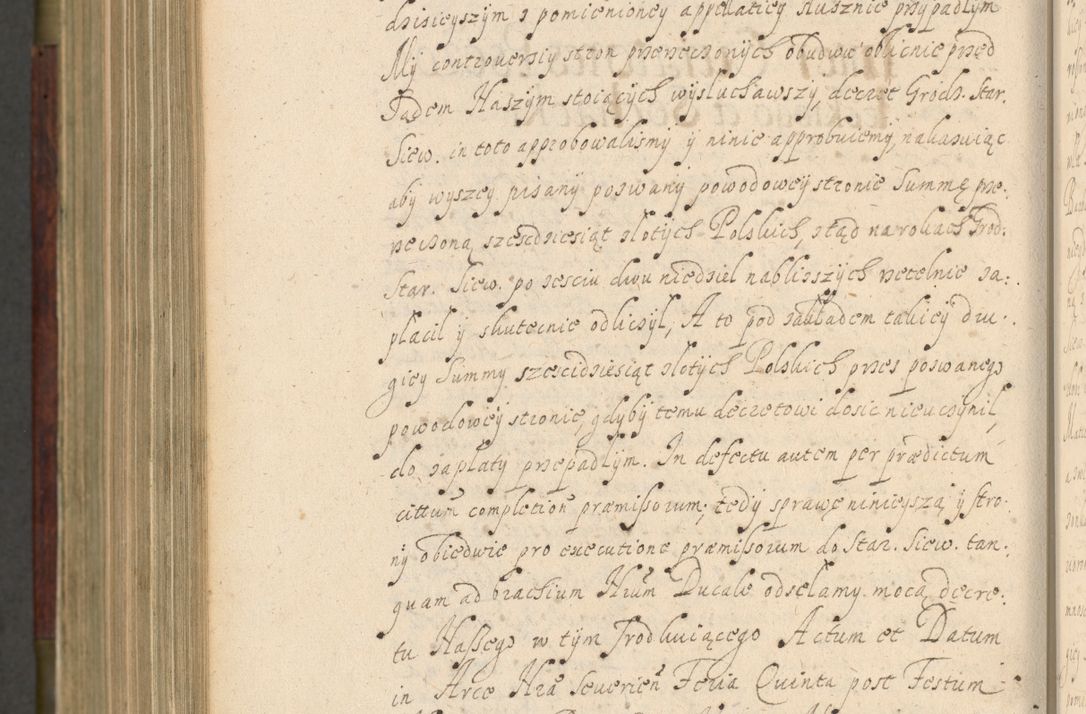 dzisieyszym z pomienioney appellatiey słusznie przypadłym
My controversiy stron przerzeczonych obudwu oblicnie przed
Sądem Naszym stoiących wysłuchawszy, decret Grodz. Star.
Siew. in toto approbowalismy y ninie approbuiemy, nakazuiąc
aby wyszey pisany pozwany powodowey stronie Summę prze:
rzeczoną szescdziesiąt złotych Polskich, ztąd na rokach Grod:
Star. Siew. po zesciu dwu niedziel nabliższych rzetelnie za:
płacił y skutecnie odliczył, A to pod zakładem takiey dru:
giey Summy szescidziesiąt złotych Polskich przez pozwanego
powodowey stronie, gdyby temu decretowi dosic nieuczynił,
do zapłaty przepadłym. In defectu autem per prædictum
cittum completion præmissorum, tedy sprawę ninieyszą y stro:
ny obiedwie pro executione præmissorum do Star. Siew. tan:
quam ad brachium Nrum Ducale odsełamy mocą decre:
tu Naszego w tym Jrodkuiącego Actum et Datum
in Arce Nra Severien Feria Quinta post Festum